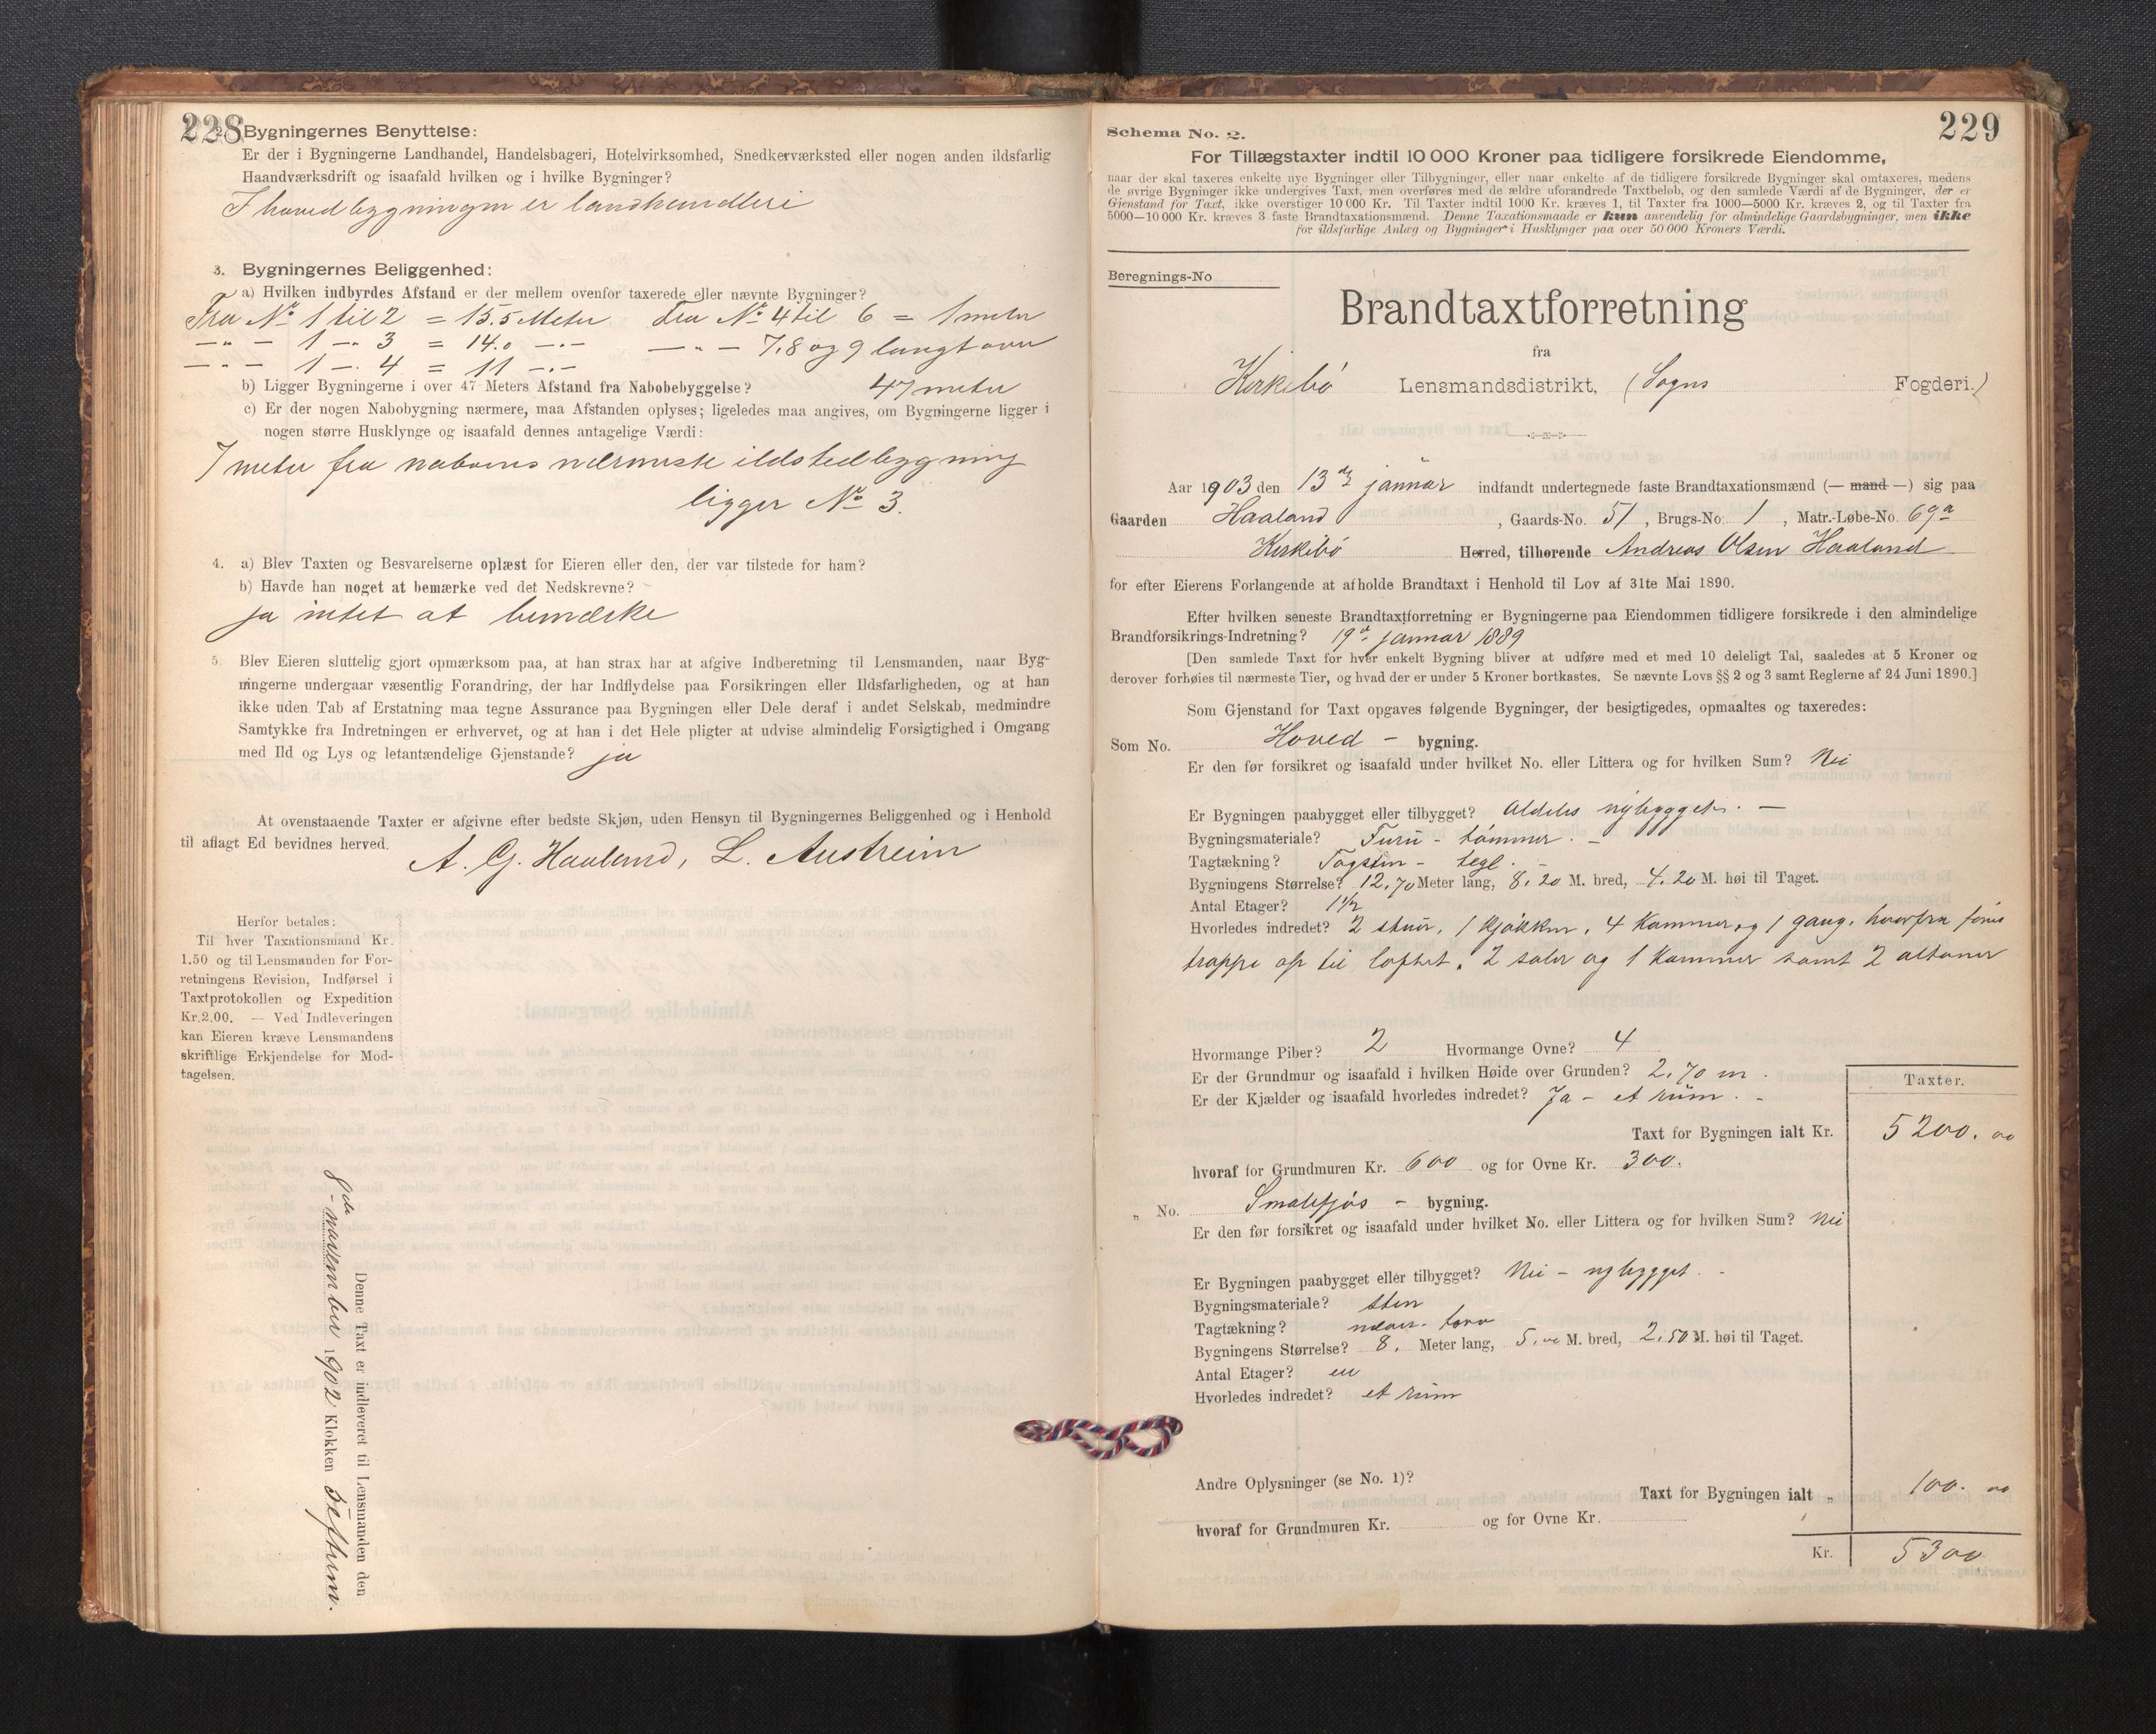 228
2. Bygningernes Benyttelse:
Er der i Bygningerne Landhandel, Handelsbageri, Hotelvirksomhed, Snedkerværksted eller nogen anden ildsfarlig
Haandværksdrift og isaafald hvilken og i hvilke Bygninger?
I hovedbygningen er landhandleri
3. Bygningernes Beliggenhed:
a) Hvilken indbyrdes Afstand er der mellem ovenfor taxerede eller nævnte Bygninger?
Fra No 1 til 2 = 15.5 Meter Fra No 4 til 6 = 1 meter
—"— 1 —"— 3 = 14.0 —"— —"— 7.8 og 9 langt over
—"— 1 —"— 4 = 11 —"—
b) Ligger Bygningerne i over 47 Meters Afstand fra Nabobebyggelse? 47 meter
c) Er der nogen Nabobygning nærmere, maa Afstanden oplyses; ligeledes maa angives, om Bygningerne ligger i
nogen større Husklynge og isaafald dennes antagelige Værdi:
7 meter fra naboens nærmeste ildstedbygning
ligger No 3.
4. a) Blev Taxten og Besvarelserne oplæst for Eieren eller den, der var tilstede for ham?
b) Havde han noget at bemærke ved det Nedskrevne?
ja intet at bemærke
5. Blev Eieren sluttelig gjort opmærksom paa, at han strax har at afgive Indberetning til Lensmanden, naar Byg-
ningerne undergaar væsentlig Forandring, der har Indflydelse paa Forsikringen eller Ildsfarligheden, og at han
ikke uden Tab af Erstatning maa tegne Assurance paa Bygningen eller Dele deraf i andet Selskab, medmindre
Samtykke fra Indretningen er erhvervet, og at han i det Hele pligter at udvise almindelig Forsigtighed i Omgang
med Ild og Lys og letantændelige Gjenstande? ja
At ovenstaaende Taxter er afgivne efter bedste Skjøn, uden Hensyn til Bygningernes Beliggenhed og i Henhold
til aflagt Ed bevidnes herved.
A. G. Haaland, L. Austreim
Herfor betales:
Til hver Taxationsmand Kr.
1.50 og til Lensmanden for For-
retningens Revision, Indførsel i
Taxtprotokollen og Expedition
Kr.2.00. — Ved Indleveringen
kan Eieren kræve Lensmandens
skriftlige Erkjendelse for Mod-
tagelsen.
Denne Taxt er indleveret til Lensmanden den
8de november 1902 Klokken 5 eftum.
229
Schema No. 2.
For Tillægstaxter indtil 10 000 Kroner paa tidligere forsikrede Eiendomme,
naar der skal taxeres enkelte nye Bygninger eller Tilbygninger, eller naar enkelte af de tidligere forsikrede Bygninger skal omtaxeres, medens
de øvrige Bygninger ikke undergives Taxt, men overføres med de ældre uforandrede Taxtbeløb, og den samlede Værdi af de Bygninger, der er
Gjenstand for Taxt, ikke overstiger 10 000 Kr. Til Taxter indtil 1000 Kr. kræves 1, til Taxter fra 1000—5000 Kr. kræves 2, og til Taxter fra
5000—10 000 Kr. kræves 3 faste Brandtaxationsmænd. Denne Taxationsmaade er kun anvendelig for almindelige Gaardsbygninger, men ikke
for ildsfarlige Anlæg og Bygninger i Husklynger paa over 50 000 Kroners Værdi.
Beregnings-No
Brandtaxtforretning
fra
Kirkebö Lensmandsdistrikt, (Sogns Fogderi.)
Aar 1903 den 13de januar indfandt undertegnede faste Brandtaxationsmænd (— mand —) sig paa
Gaarden Haaland, Gaards-No. 51, Brugs-No. 1, Matr.-Løbe-No. 69a
Kirkebö Herred, tilhørende Andreas Olsen Haaland
for efter Eierens Forlangende at afholde Brandtaxt i Henhold til Lov af 31te Mai 1890.
Efter hvilken seneste Brandtaxtforretning er Bygningerne paa Eiendommen tidligere forsikrede i den almindelige
Brandforsikrings-Indretning? 19de januar 1889
[Den samlede Taxt for hver enkelt Bygning bliver at udføre med et med 10 deleligt Tal, saaledes at 5 Kroner og
derover forhøies til nærmeste Tier, og hvad der er under 5 Kroner bortkastes. Se nævnte Lovs §§ 2 og 3 samt Reglerne af 24 Juni 1890.]
Som Gjenstand for Taxt opgaves følgende Bygninger, der besigtigedes, opmaaltes og taxeredes:
Som No. Hoved - bygning.
Er den før forsikret og isaafald under hvilket No. eller Littera og for hvilken Sum? Nei
Er Bygningen paabygget eller tilbygget? Aldeles nybygget. —
Bygningsmateriale? Furu - tömmer. -
Tagtækning? Tagsten - tegl. -
Bygningens Størrelse? 12,70 Meter lang, 8.20 M. bred, 4.20 M. høi til Taget.
Antal Etager? 1½
Hvorledes indredet? 2 stuer, 1 kjökken, 4 Kammer og 1 gang, hvorfra
trappe op til loftet. 2 saler og 1 Kammer samt 2 altaner
Hvormange Piber? 2 Hvormange Ovne? 4
Er der Grundmur og isaafald i hvilken Høide over Grunden? 2.70 m.
Er der Kjælder og isaafald hvorledes indredet? Ja - et rum. -
Taxter.
Taxt for Bygningen ialt Kr. 5200. 00
hvoraf for Grundmuren Kr. 600 og for Ovne Kr. 300.
„ No. Smalefjös - bygning.
Er den før forsikret og isaafald under hvilket No. eller Littera og for hvilken Sum? Nei
Er Bygningen paabygget eller tilbygget? Nei - nybygget. -
Bygningsmateriale? sten
Tagtækning? næver - torv
Bygningens Størrelse? 8. Meter lang, 5.00 M. bred, 2.50 M. høi til Taget.
Antal Etager? en
Hvorledes indredet? et rum
Andre Oplysninger (se No. 1)?
Taxt for Bygningen ialt „ 100. 00
hvoraf for Grundmuren Kr. og for Ovne Kr.
Kr. 5300